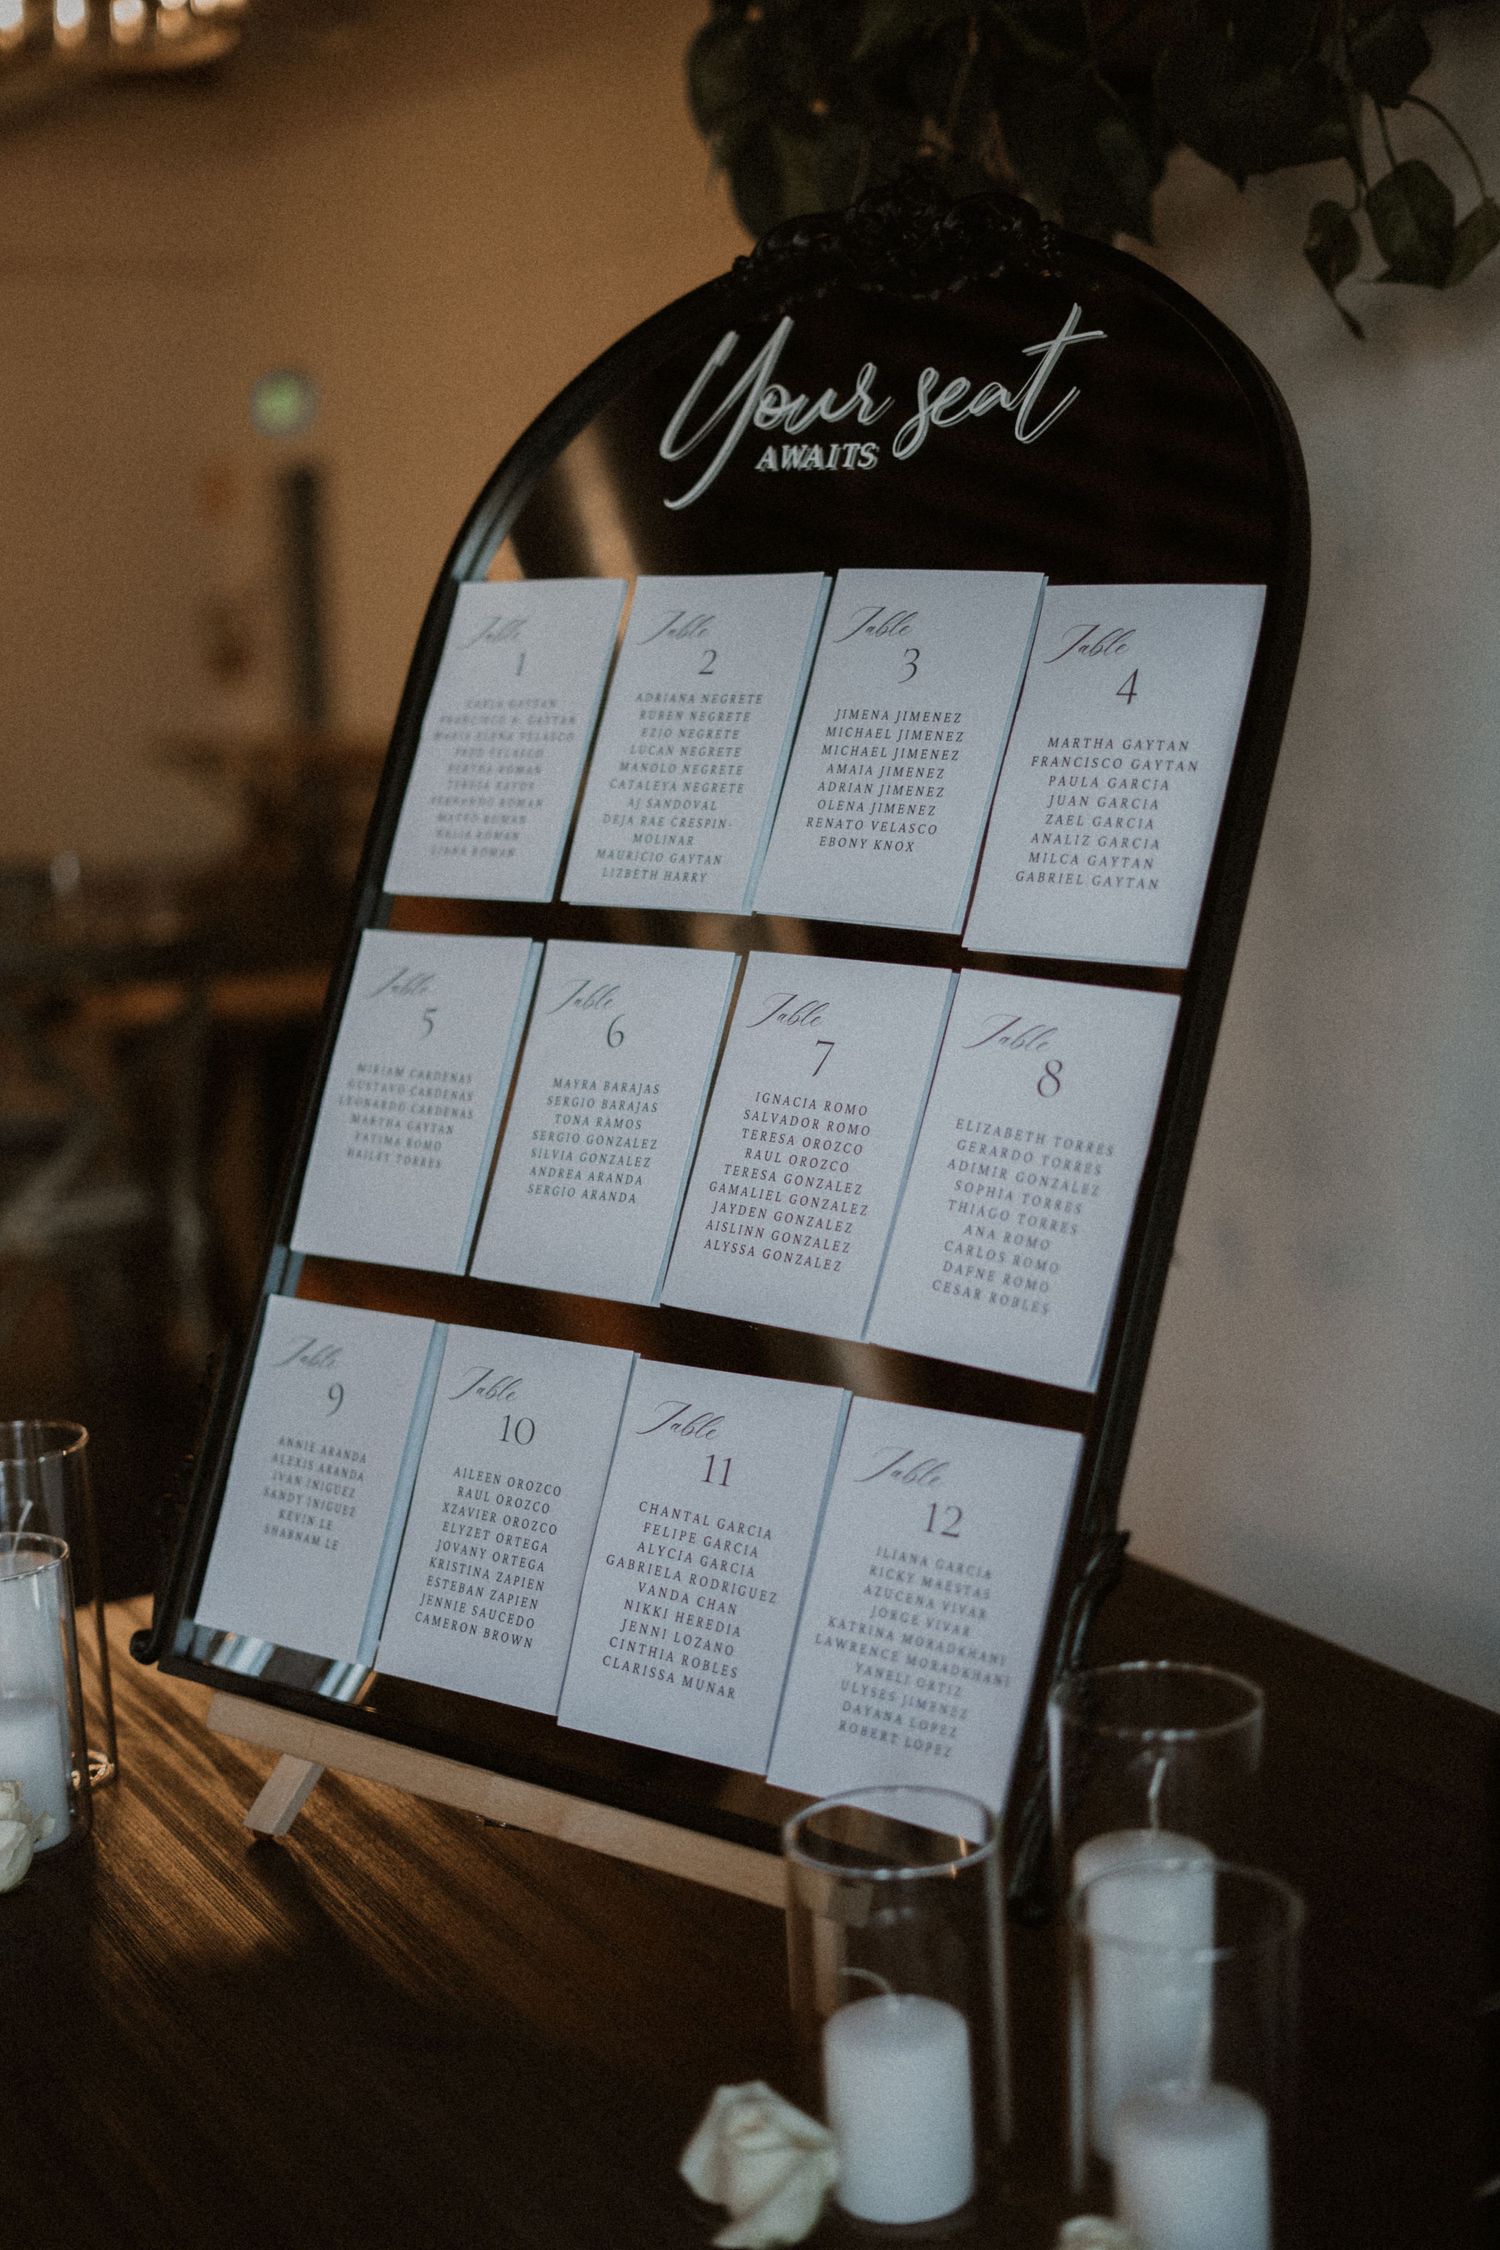 Your seat
AWAITS
Table
1
CARLA GAYTAN
FRANCISCO A. GAYTAN
MARIA ELENA VELASCO
FRED VELASCO
BERTHA ROMAN
TERESA
FERNANDO ROMAN
MATEO ROMAN
ROMAN
ROMAN
Table
2
ADRIANA NEGRETE
RUBEN NEGRETE
EZIO NEGRETE
LUCAN NEGRETE
MANOLO NEGRETE
CATALEYA NEGRETE
AJ SANDOVAL
DEJA RAE CRESPIN-
MOLINAR
MAURICIO GAYTAN
LIZBETH HARRY
Table
3
JIMENA JIMENEZ
MICHAEL JIMENEZ
MICHAEL JIMENEZ
AMAIA JIMENEZ
ADRIAN JIMENEZ
OLENA JIMENEZ
RENATO VELASCO
EBONY KNOX
Table
4
MARTHA GAYTAN
FRANCISCO GAYTAN
PAULA GARCIA
JUAN GARCIA
ZAEL GARCIA
ANALIZ GARCIA
MILCA GAYTAN
GABRIEL GAYTAN
Table
5
MIRIAM CARDENAS
GUSTAVO CARDENAS
LEONARDO CARDENAS
MARTHA GAYTAN
FATIMA ROMO
HAILEY TORRES
Table
6
MAYRA BARAJAS
SERGIO BARAJAS
TONA RAMOS
SERGIO GONZALEZ
SILVIA GONZALEZ
ANDREA ARANDA
SERGIO ARANDA
Table
7
IGNACIA ROMO
SALVADOR ROMO
TERESA OROZCO
RAUL OROZCO
TERESA GONZALEZ
GAMALIEL GONZALEZ
JAYDEN GONZALEZ
AISLINN GONZALEZ
ALYSSA GONZALEZ
Table
8
ELIZABETH TORRES
GERARDO TORRES
ADIMIR GONZALEZ
SOPHIA TORRES
THIAGO TORRES
ANA ROMO
CARLOS ROMO
DAFNE ROMO
CESAR ROBLES
Table
9
ANNIE ARANDA
ALEXIS ARANDA
IVAN INIGUEZ
SANDY INIGUEZ
KEVIN LE
SHABNAM LE
Table
10
AILEEN OROZCO
RAUL OROZCO
XZAVIER OROZCO
ELYZET ORTEGA
JOVANY ORTEGA
KRISTINA ZAPIEN
ESTEBAN ZAPIEN
JENNIE SAUCEDO
CAMERON BROWN
Table
11
CHANTAL GARCIA
FELIPE GARCIA
ALYCIA GARCIA
GABRIELA RODRIGUEZ
VANDA CHAN
NIKKI HEREDIA
JENNI LOZANO
CINTHIA ROBLES
CLARISSA MUNAR
Table
12
ILIANA GARCIA
RICKY MAESTAS
AZUCENA VIVAR
JORGE VIVAR
KATRINA MORADKHANI
LAWRENCE MORADKHANI
YANELI ORTIZ
ULYSES JIMENEZ
DAYANA LOPEZ
ROBERT LOPEZ